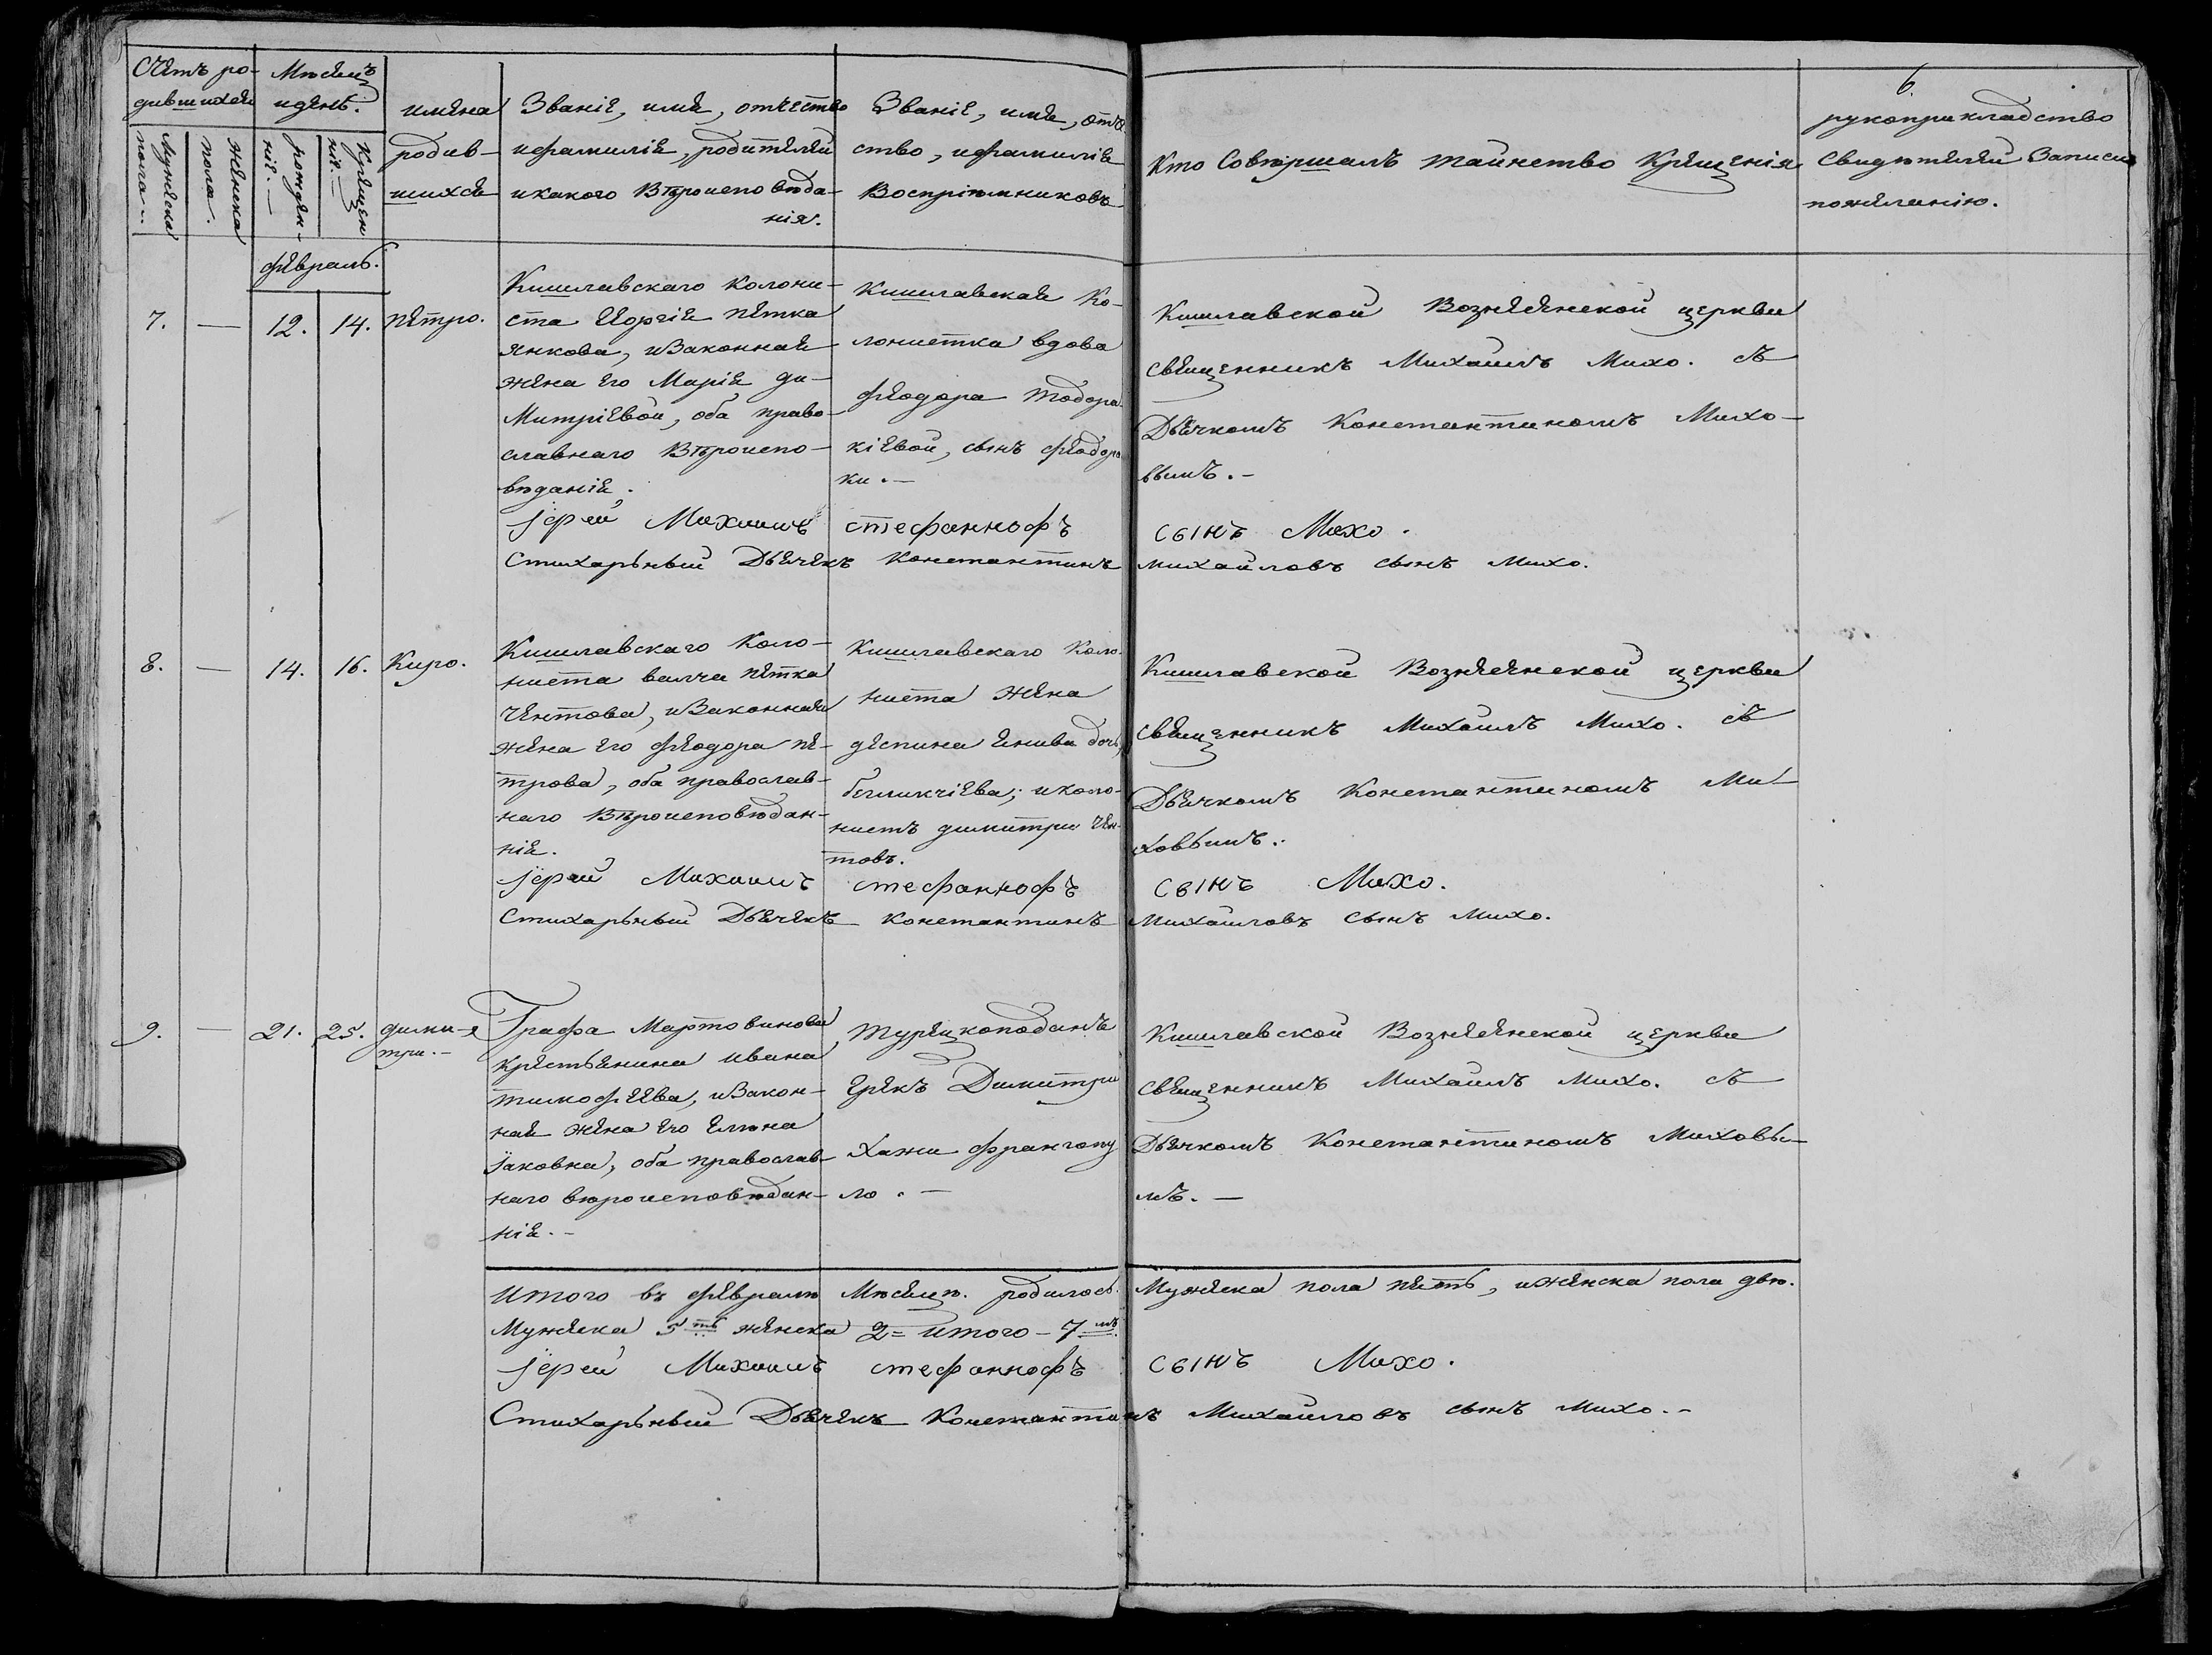 6.
Счетъ ро-
дившихся
Мѣсяцъ
и день.
Мужеска
пола.
Женска
пола.
рожден-
ніе.
Крещен
ніе.
имена
родив-
шихся
Званіе, имя, отчество
и фамилія, родителей
и какого Вѣроисповѣда-
нія.
Званіе, имя, отче
ство, и фамилія
Воспріемниковъ
Кто Совершалъ таинство Крещенія
рукоприкладство
Свидѣтелей Записи
по желанію.
февраль.
7.
—
12.
14.
петро.
Кишлавскаго колони-
ста Георгія петка
янкова, и Законная
жена его Марія ди-
Митріевой, оба право-
славнаго Вѣроиспо-
вѣданія.
Кишлавская Ко-
лонистка вдова
феодора тодора-
кіевой, сынъ феодора
ки. —
Кишлавской Вознесенской церкви
священникъ Михаилъ Михо. съ
Дьячкомъ Константиномъ Михо-
вымъ. —
Іерей Михаилъ стефанофъ сынъ Михо.
Стихарьный Дьячекъ Константинъ михайловъ сынъ михо.
8.
—
14.
16.
Киро.
Кишлавскаго Коло-
ниста велчи петка
Чентова, и Законная
жена его феодора пе-
трова, оба православ-
наго Вѣроисповѣдан-
нія.
Кишлавскаго Коло-
ниста жена
деспина енива дочь,
беиликчіева; и коло-
нистъ димитри Чен-
товъ.
Кишлавской Вознесенской церкви
священникъ Михаилъ Михо. съ
Дьячкомъ Константиномъ Ми-
ховымъ.
Іерей Михаилъ стефанофъ сынъ Михо.
Стихарьный Дьячекъ Константинъ Михайловъ сынъ михо.
9.
—
21.
25.
дими-
три. —
Графа Мартовинова
крестьянина ивана
тимофеева, и Закон-
ная жена его Елена
Іаковна, оба православ-
наго вѣроисповѣдан-
нія. —
турецкоподанъ
грекъ Димитри
Хажи франгопу
ло. —
Кишлавской Вознесенской церкви
священникъ Михаилъ михо. съ
Дьячкомъ Константиномъ Миховы-
мъ. —
Итого въ феврале Мѣсяце. родилось Мужеска пола пять, и женска пола две.
Мужеска 5ть женска 2= итого — 7мь.
Іерей Михаилъ стефанофъ сынъ Михо.
Стихарьный Дьячекъ Константинъ Михайловъ сынъ михо. —